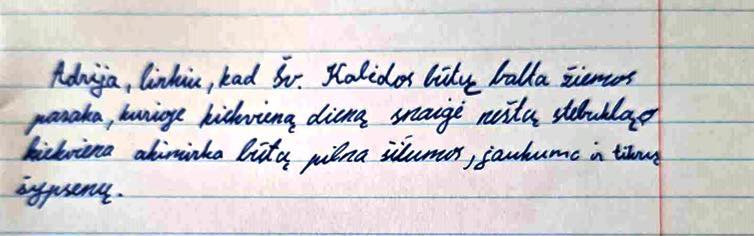 Adrija, linkiu, kad Šv. Kalėdos būtų balta žiemos
pasaka, kurioje kiekvieną dieną snaigė neštų stebuklą, o
kiekviena akimirka būtų pilna šilumos, jaukumo ir tikrų
šypsenų.